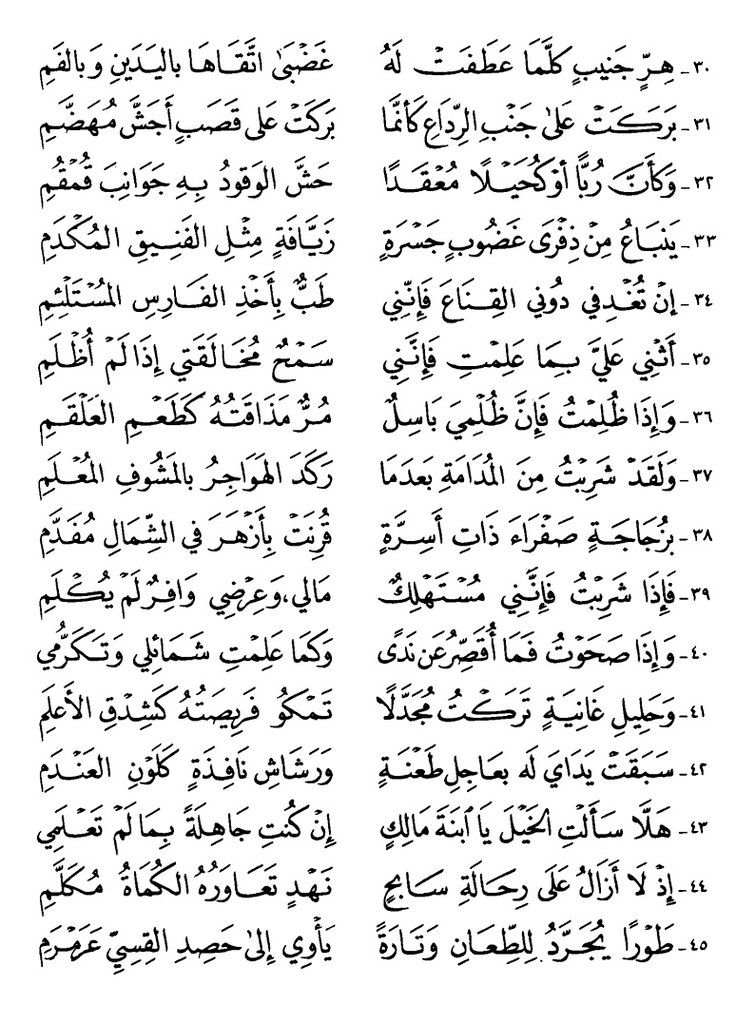 ٣٠- هِرٍّ جَنِيبٍ كلَّمَا عَطَفَتْ لَهُ غَضْبَىٰ اتَّقَاهَا باليَدَينِ وَبالفَمِ
٣١- بَرَكَتْ عَلىٰ جَنْبِ الرِّدَاعِ كَأنَّمَا بَرَكَتْ عَلى قَصَبٍ أَجَشَّ مُهَضَّمِ
٣٢- وَكَأَنَّ رُبًّا أوْ كُحَيْلًا مُعْقَدًا حَشَّ الوَقودُ بِهِ جَوَانِبَ قُمْقُمِ
٣٣- يَنْبَاعُ مِنْ ذِفْرَى غَضُوبٍ جَسْرَةٍ زَيَّافَةٍ مِثْلِ الفَنِيقِ المُكْدَمِ
٣٤- إنْ تُغْدِفي دُوني القِنَاعَ فَإنَّنِي طَبٌّ بِأَخْذِ الفَارِسِ المُسْتَلْئِمِ
٣٥- أَثْنِي عَلَيَّ بِمَا عَلِمْتِ فَإنَّنِي سَمْحٌ مُخَالَقَتي إذَا لَمْ أُظْلَمِ
٣٦- وَإذَا ظُلِمْتُ فَإنَّ ظُلْمِيَ بَاسِلٌ مُرٌّ مَذَاقَتُهُ كَطَعْمِ العَلْقَمِ
٣٧- وَلَقَدْ شَرِبْتُ مِنَ المُدَامَةِ بَعدَمَا رَكَدَ الهَوَاجِرُ بالمَشُوفِ المُعْلَمِ
٣٨- بزُجَاجَةٍ صَفْرَاءَ ذَاتِ أَسِرَّةٍ قُرِنَتْ بِأَزْهَرَ في الشِّمَالِ مُفَدَّمِ
٣٩- فَإذَا شَرِبْتُ فَإنَّنِي مُسْتَهْلِكٌ مَالي، وَعِرْضِي وَافِرٌ لَمْ يُكْلَمِ
٤٠- وَإذَا صَحَوْتُ فَمَا أُقَصِّرُ عَن نَدًى وَكَمَا عَلِمْتِ شَمَائلي وَتَكَرُّمي
٤١- وَحَلِيلِ غَانِيَةٍ تَرَكْتُ مُجَدَّلًا تَمْكُو فَرِيصَتُهُ كَشِدْقِ الأَعلَمِ
٤٢- سَبَقَتْ يَدَايَ لَه بعَاجِلِ طَعْنَةٍ وَرَشَاشِ نَافِذَةٍ كَلَوْنِ العَنْدَمِ
٤٣- هَلَّا سَأَلْتِ الخَيْلَ يَا ابنَةَ مَالِكٍ إنْ كُنْتِ جَاهِلَةً بِمَا لَمْ تَعْلَمِي
٤٤- إذْ لَا أَزَالُ عَلَى رِحَالَةِ سَابِحٍ نَهْدٍ تَعَاوَرُهُ الكُمَاةُ مُكَلَّمِ
٤٥- طَوْرًا يُجَرَّدُ لِلطِّعَانِ وَتَارَةً يَأْوِي إلىٰ حَصِدِ القِسِيِّ عَرَمْرَمِ